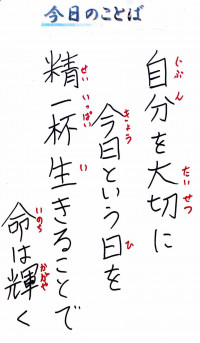 今日のことば
自分を大切に
今日という日を
精一杯生きることで
命は輝く
じぶん
たいせつ
きょう
ひ
せいいっぱい
い
いのち
かがや